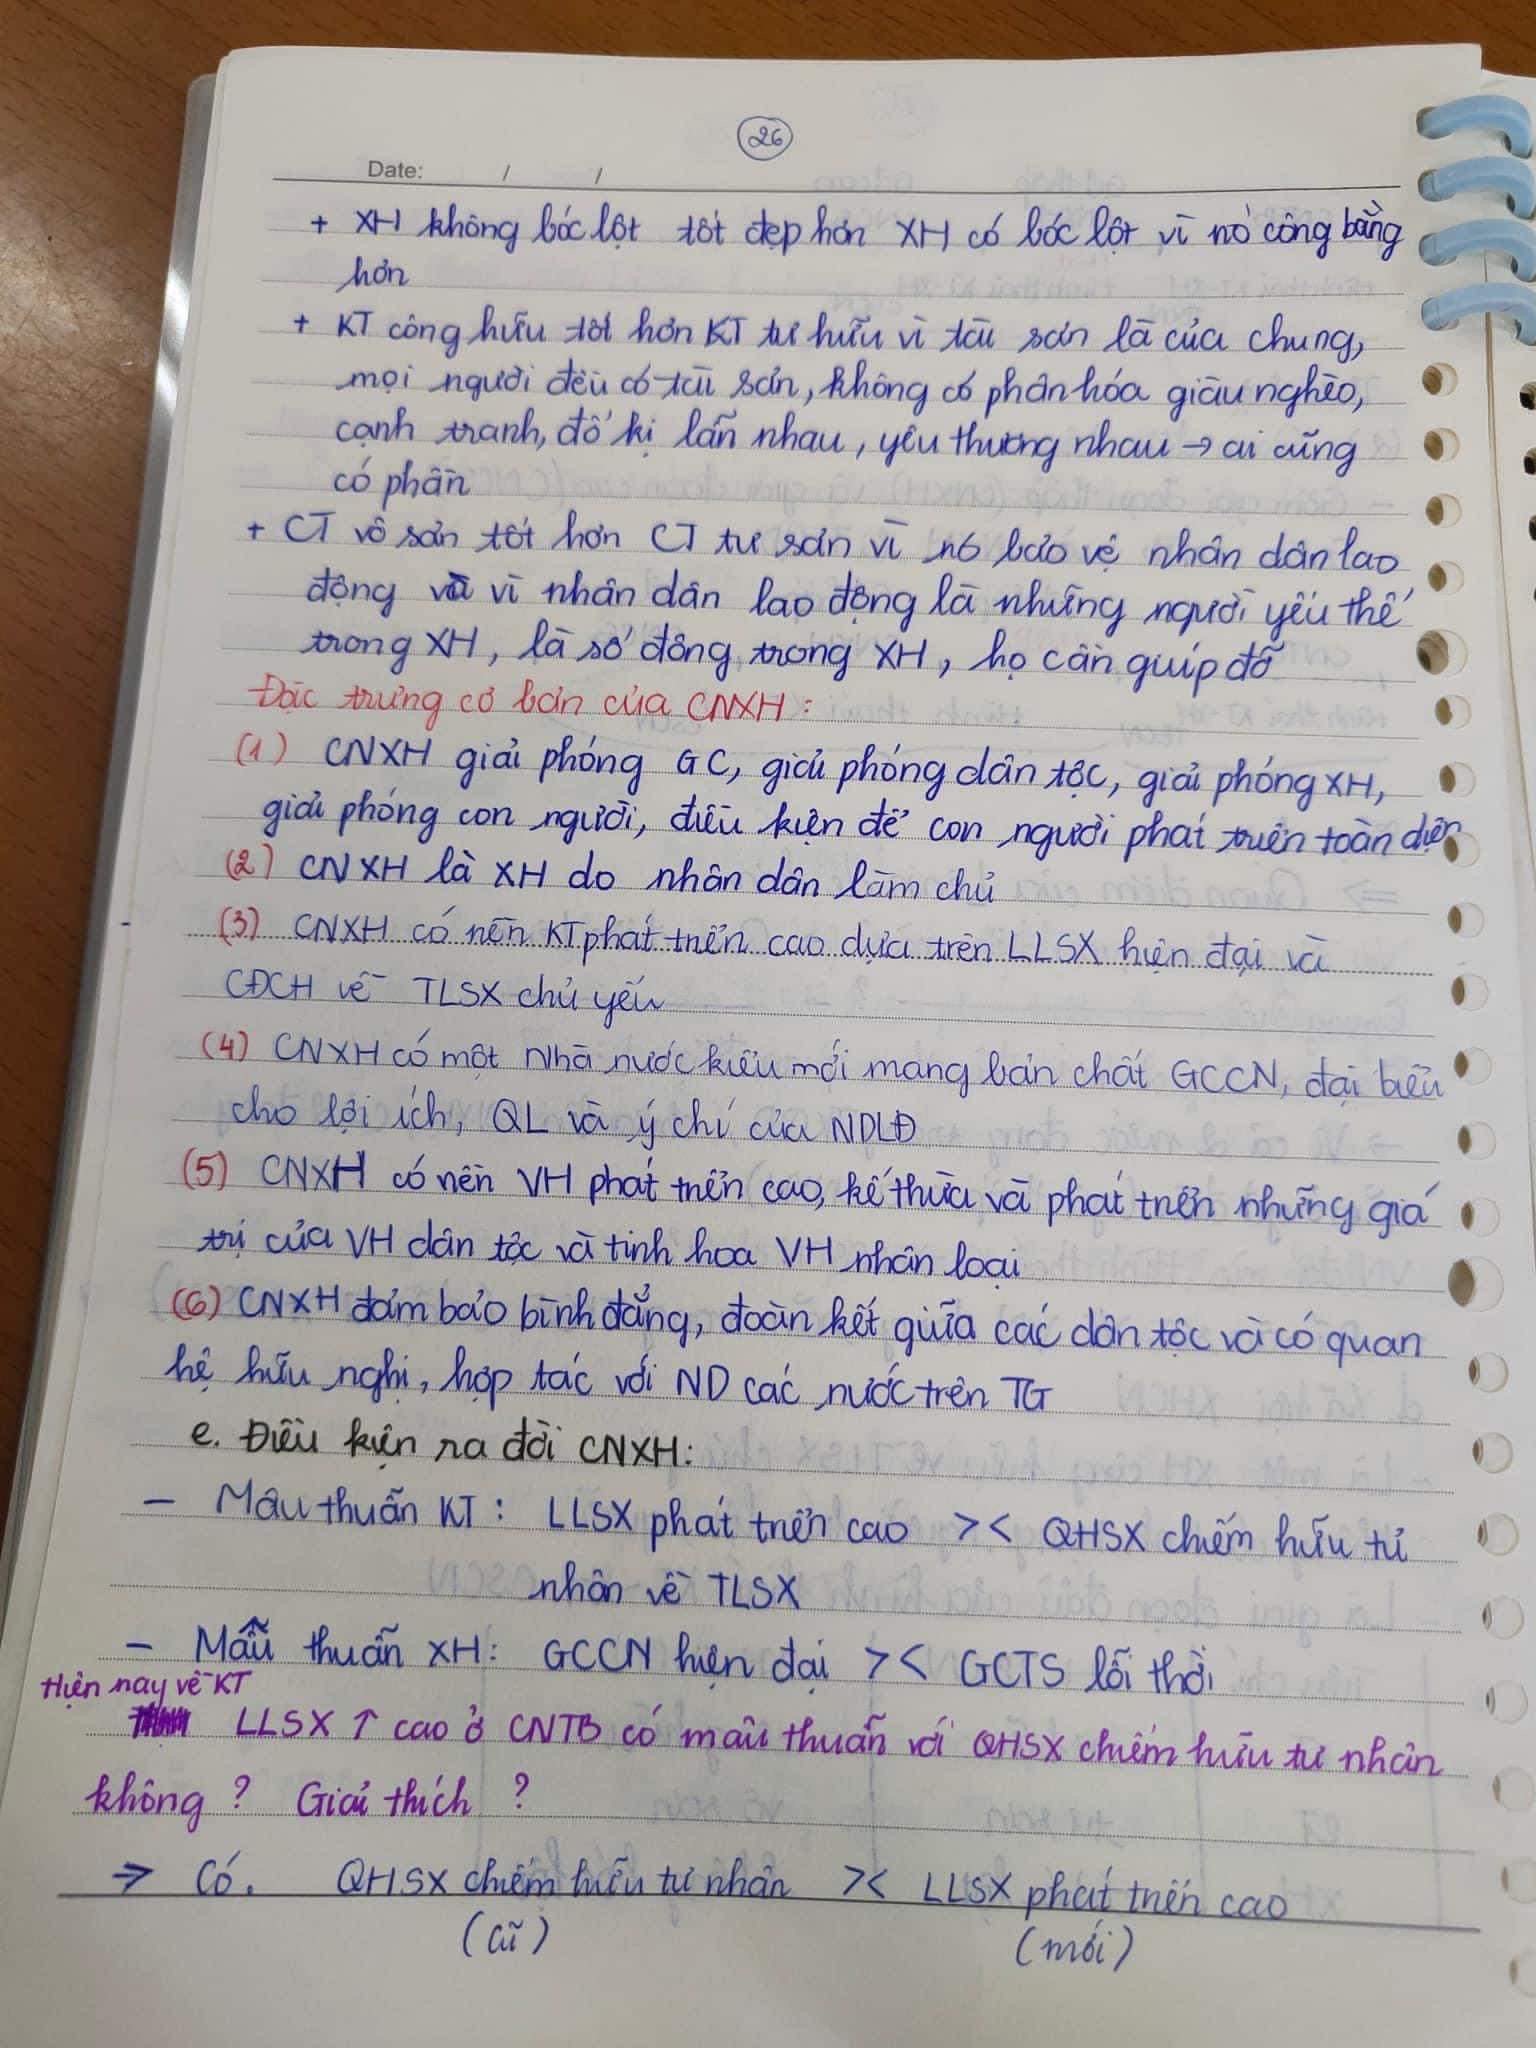 26
Date: / /
+ XH không bóc lột tốt đẹp hơn XH có bóc lột vì nó công bằng
hơn
+ KT công hữu tốt hơn KT tư hữu vì tài sản là của chung,
mọi người đều có tài sản, không có phân hóa giàu nghèo,
cạnh tranh, đố kị lẫn nhau, yêu thương nhau → ai cũng
có phần
+ CT vô sản tốt hơn CT tư sản vì nó bảo vệ nhân dân lao
động và vì nhân dân lao động là những người yếu thế
trong XH, là số đông trong XH, họ cần giúp đỡ
Đặc trưng cơ bản của CNXH:
(1) CNXH giải phóng GC, giải phóng dân tộc, giải phóng XH,
giải phóng con người, điều kiện để con người phát triển toàn diện
(2) CNXH là XH do nhân dân làm chủ
(3) CNXH có nền KT phát triển cao dựa trên LLSX hiện đại và
CĐCH về TLSX chủ yếu
(4) CNXH có một Nhà nước kiểu mới mang bản chất GCCN, đại biểu
cho lợi ích, QL và ý chí của NDLĐ
(5) CNXH có nền VH phát triển cao, kế thừa và phát triển những giá
trị của VH dân tộc và tinh hoa VH nhân loại
(6) CNXH đảm bảo bình đẳng, đoàn kết giữa các dân tộc và có quan
hệ hữu nghị, hợp tác với ND các nước trên TG
e. Điều kiện ra đời CNXH:
- Mâu thuẫn KT: LLSX phát triển cao >< QHSX chiếm hữu tư
nhân về TLSX
- Mẫu thuẫn XH: GCCN hiện đại >< GCTS lỗi thời
Hiện nay về KT
LLSX ↑ cao ở CNTB có mâu thuẫn với QHSX chiếm hữu tư nhân
không? Giải thích?
⇒ Có. QHSX chiếm hữu tư nhân >< LLSX phát triển cao
(cũ) (mới)